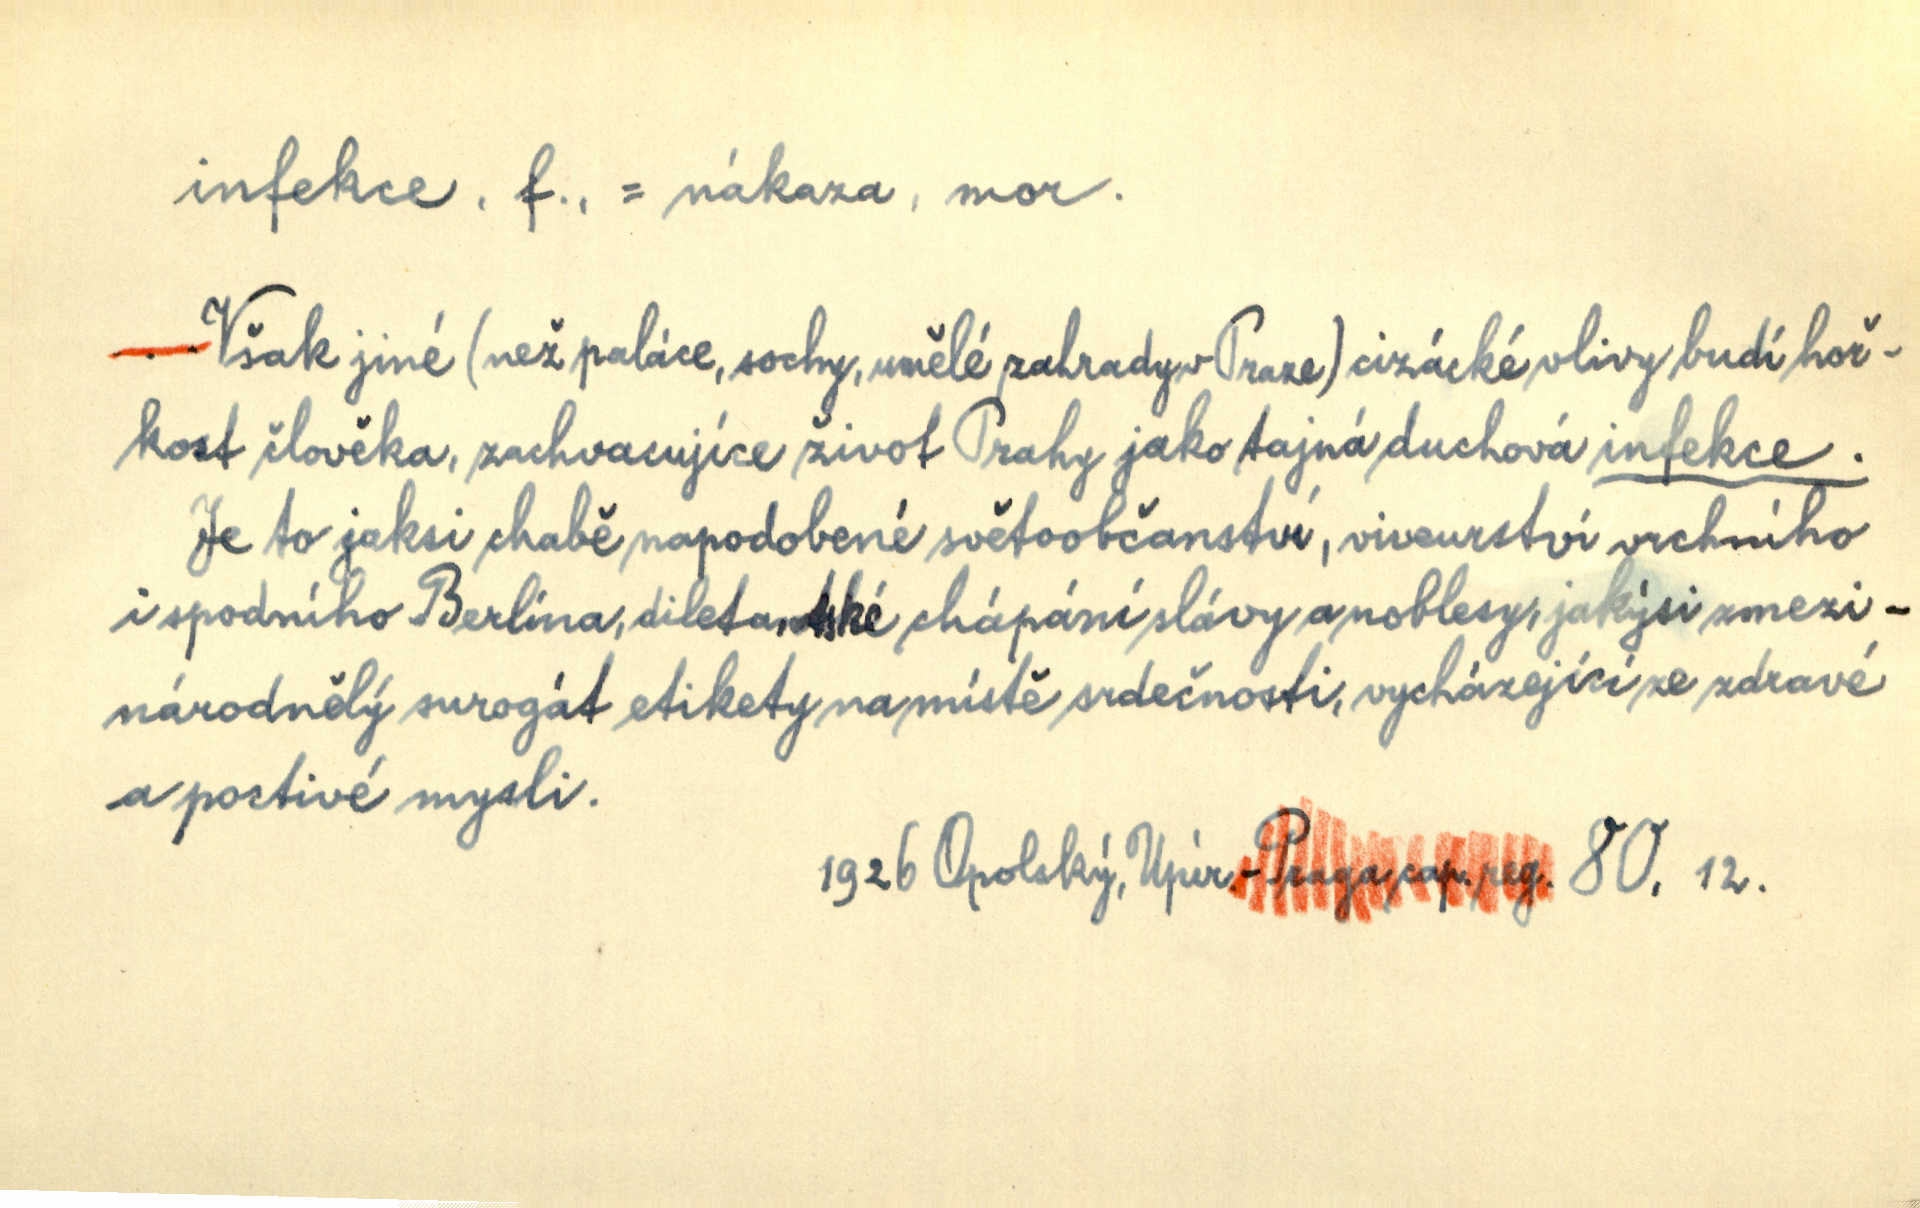 infekce, f., = nákaza, mor.
Však jiné (než paláce, sochy, umělé zahrady v Praze) cizácké vlivy budí hoř-
kost člověka, zachvacujíce život Prahy jako tajná duchová infekce.
Je to jaksi chabě napodobené světoobčanství, viveurství vrchního
i spodního Berlína, diletantské chápání slávy a noblesy, jakýsi zmezi-
národnělý surogát etikety na místě srdečnosti, vycházející ze zdravé
a poctivé mysli.
1926 Opolský, Upír. - Praga cap. reg. 80, 12.